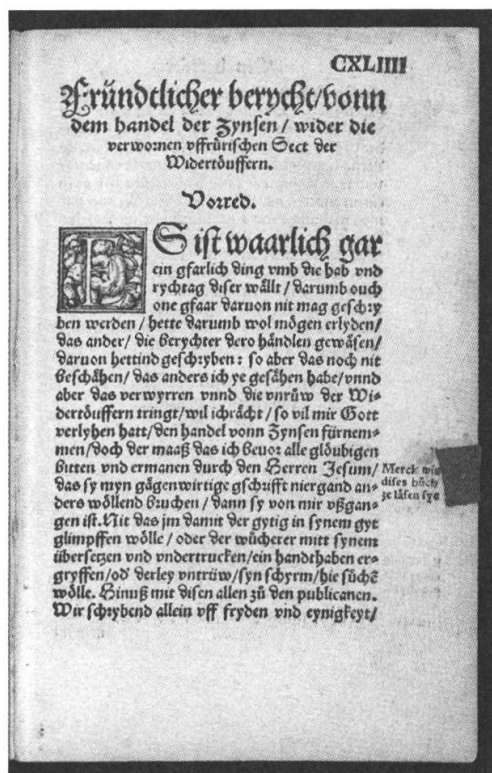 CXLIIII
Fründtlicher berycht/vonn
dem handel der Zynsen/ wider die
verwornen vffrürischen Sect der
Widertöuffern.
Vorred.
ES ist waarlich gar
ein gfarlich ding vmb die hab vnd
rychtag diser wällt/ darumb ouch
one gfaar daruon nit mag geschry
ben werden/ hette darumb wol mögen erlyden/
das ander/ die berychter dero händlen gewäsen/
daruon hettind geschryben: so aber das noch nit
beschähen/ das anders ich ye gesähen habe/ vnnd
aber das verwyrren vnnd die vnrüw der Wi⸗
dertöuffern tringt/ wil ich rächt/ so vil mir Gott
verlyhen hatt/ den handel vonn Zynsen fürnem⸗
men/ doch der maaß das ich beuor alle glöubigen
bitten vnd ermanen durch den Herren Jesum/
das sy myn gägenwirtige gschrifft niergand an⸗
ders wöllend bruchen/ dann sy von mir vßgan⸗
gen ist. Nit das jm damit der gytig in synem gyt
glimpffen wölle/ oder der wücherer mitt synem
übersetzen vnd vndertrucken/ ein handthaben er⸗
gryffen/ od' derley vntrüw/ syn schyrm/ hie süchē
wölle. Hinuß mit disen allen zů den publicanen.
Wir schrybend allein vff fryden vnd eynigkeyt/
Merck wie
dises büch
ze läsen sye